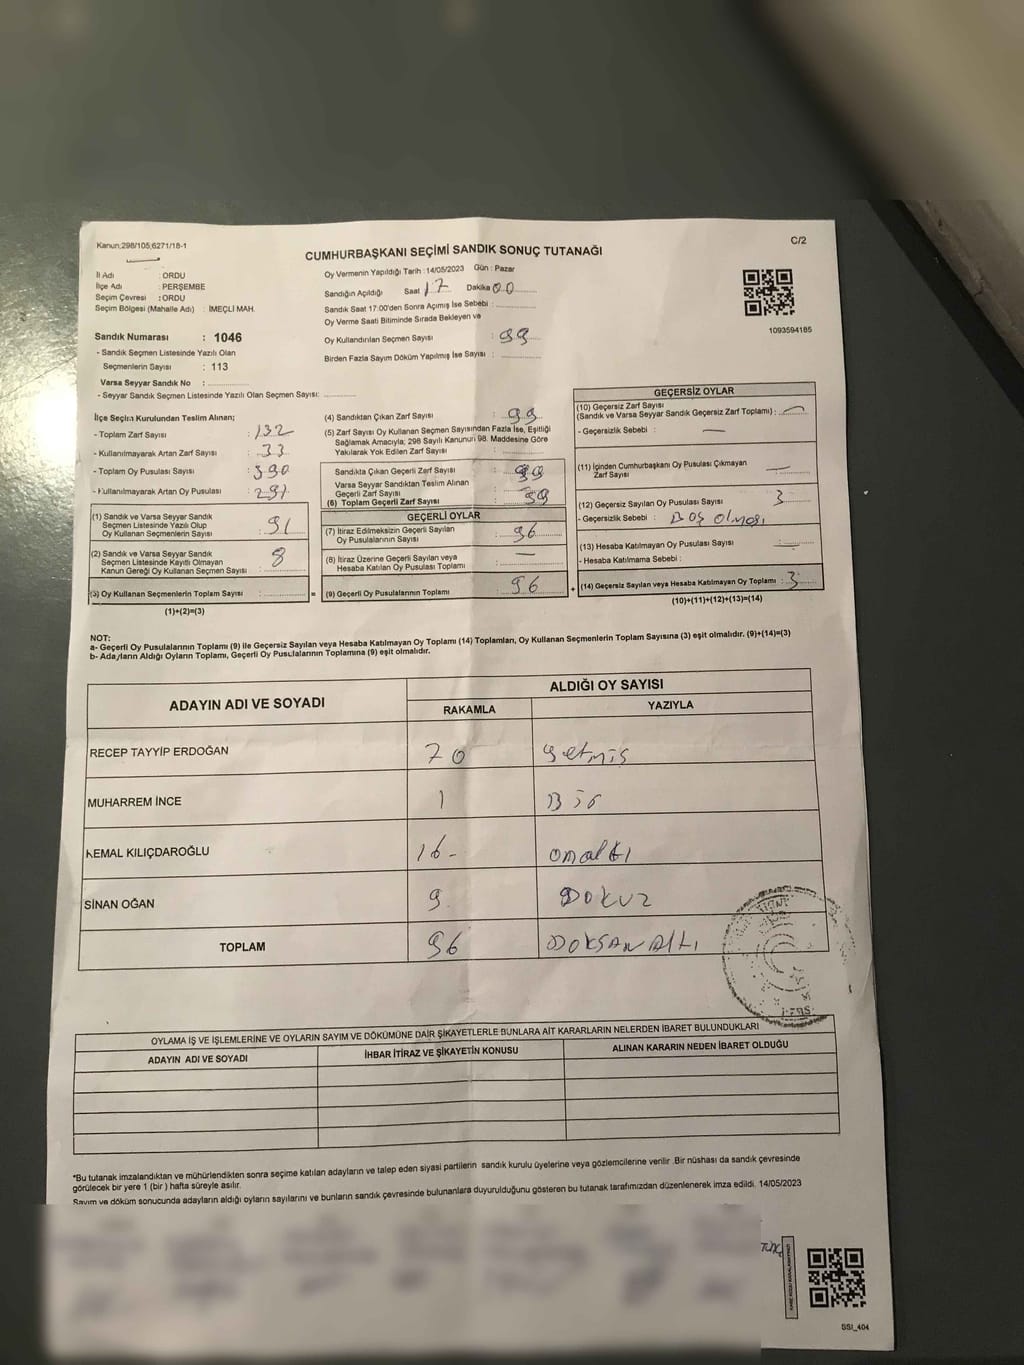 Kanun;298/105;6271/18-1
C/2
CUMHURBAŞKANI SEÇİMİ SANDIK SONUÇ TUTANAĞI
İl Adı : ORDU
İlçe Adı : PERŞEMBE
Seçim Çevresi : ORDU
Seçim Bölgesi (Mahalle Adı) : İMEÇLİ MAH.
Sandık Numarası : 1046
- Sandık Seçmen Listesinde Yazılı Olan
Seçmenlerin Sayısı : 113
Varsa Seyyar Sandık No :
- Seyyar Sandık Seçmen Listesinde Yazılı Olan Seçmen Sayısı:
Oy Vermenin Yapıldığı Tarih : 14/05/2023 Gün : Pazar
Sandığın Açıldığı Saat 17 Dakika 00
Sandık Saat 17:00'den Sonra Açımış İse Sebebi :
Oy Verme Saati Bitiminde Sırada Bekleyen ve
Oy Kullandırılan Seçmen Sayısı : 99
Birden Fazla Sayım Döküm Yapılmış İse Sayısı :
1093594185
İlçe Seçim Kurulundan Teslim Alınan;
- Toplam Zarf Sayısı : 132
- Kullanılmayarak Artan Zarf Sayısı : 33
- Toplam Oy Pusulası Sayısı : 390
- Kullanılmayarak Artan Oy Pusulası : 291
(1) Sandık ve Varsa Seyyar Sandık
Seçmen Listesinde Yazılı Olup
Oy Kullanan Seçmenlerin Sayısı : 91
(2) Sandık ve Varsa Seyyar Sandık
Seçmen Listesinde Kayıtlı Olmayan
Kanun Gereği Oy Kullanan Seçmen Sayısı : 8
(3) Oy Kullanan Seçmenlerin Toplam Sayısı :
(1)+(2)=(3)
(4) Sandıktan Çıkan Zarf Sayısı : 99
(5) Zarf Sayısı Oy Kullanan Seçmen Sayısından Fazla İse, Eşitliği
Sağlamak Amacıyla; 298 Sayılı Kanunun 98. Maddesine Göre
Yakılarak Yok Edilen Zarf Sayısı :
Sandıkta Çıkan Geçerli Zarf Sayısı : 99
Varsa Seyyar Sandıktan Teslim Alınan
Geçerli Zarf Sayısı :
(6) Toplam Geçerli Zarf Sayısı : 99
GEÇERLİ OYLAR
(7) İtiraz Edilmeksizin Geçerli Sayılan
Oy Pusulalarının Sayısı : 96
(8) İtiraz Üzerine Geçerli Sayılan veya
Hesaba Katılan Oy Pusulası Toplamı : —
(9) Geçerli Oy Pusulalarının Toplamı : 96
GEÇERSİZ OYLAR
(10) Geçersiz Zarf Sayısı
(Sandık ve Varsa Seyyar Sandık Geçersiz Zarf Toplamı) : —
- Geçersizlik Sebebi : —
(11) İçinden Cumhurbaşkanı Oy Pusulası Çıkmayan
Zarf Sayısı : —
(12) Geçersiz Sayılan Oy Pusulası Sayısı : 3
- Geçersizlik Sebebi : BOŞ olması
(13) Hesaba Katılmayan Oy Pusulası Sayısı : —
- Hesaba Katılmama Sebebi :
(14) Geçersiz Sayılan veya Hesaba Katılmayan Oy Toplamı : 3
(10)+(11)+(12)+(13)=(14)
NOT:
a- Geçerli Oy Pusulalarının Toplamı (9) ile Geçersiz Sayılan veya Hesaba Katılmayan Oy Toplamı (14) Toplamları, Oy Kullanan Seçmenlerin Toplam Sayısına (3) eşit olmalıdır. (9)+(14)=(3)
b- Adayların Aldığı Oyların Toplamı, Geçerli Oy Pusulalarının Toplamına (9) eşit olmalıdır.
ADAYIN ADI VE SOYADI
ALDIĞI OY SAYISI
RAKAMLA YAZIYLA
RECEP TAYYİP ERDOĞAN 70 yetmiş
MUHARREM İNCE 1 Bir
KEMAL KILIÇDAROĞLU 16- onaltı
SİNAN OĞAN 9 DOKUZ
TOPLAM 96 DOKSAN ALTI
OYLAMA İŞ VE İŞLEMLERİNE VE OYLARIN SAYIM VE DÖKÜMÜNE DAİR ŞİKAYETLERLE BUNLARA AİT KARARLARIN NELERDEN İBARET BULUNDUKLARI
ADAYIN ADI VE SOYADI İHBAR İTİRAZ VE ŞİKAYETİN KONUSU ALINAN KARARIN NEDEN İBARET OLDUĞU
*Bu tutanak imzalandıktan ve mühürlendikten sonra seçime katılan adayların ve talep eden siyasi partilerin sandık kurulu üyelerine veya gözlemcilerine verilir .Bir nüshası da sandık çevresinde
görülecek bir yere 1 (bir ) hafta süreyle asılır.
Sayım ve döküm sonucunda adayların aldığı oyların sayılarını ve bunların sandık çevresinde bulunanlara duyurulduğunu gösteren bu tutanak tarafımızdan düzenlenerek imza edildi. 14/05/2023
SSI_404